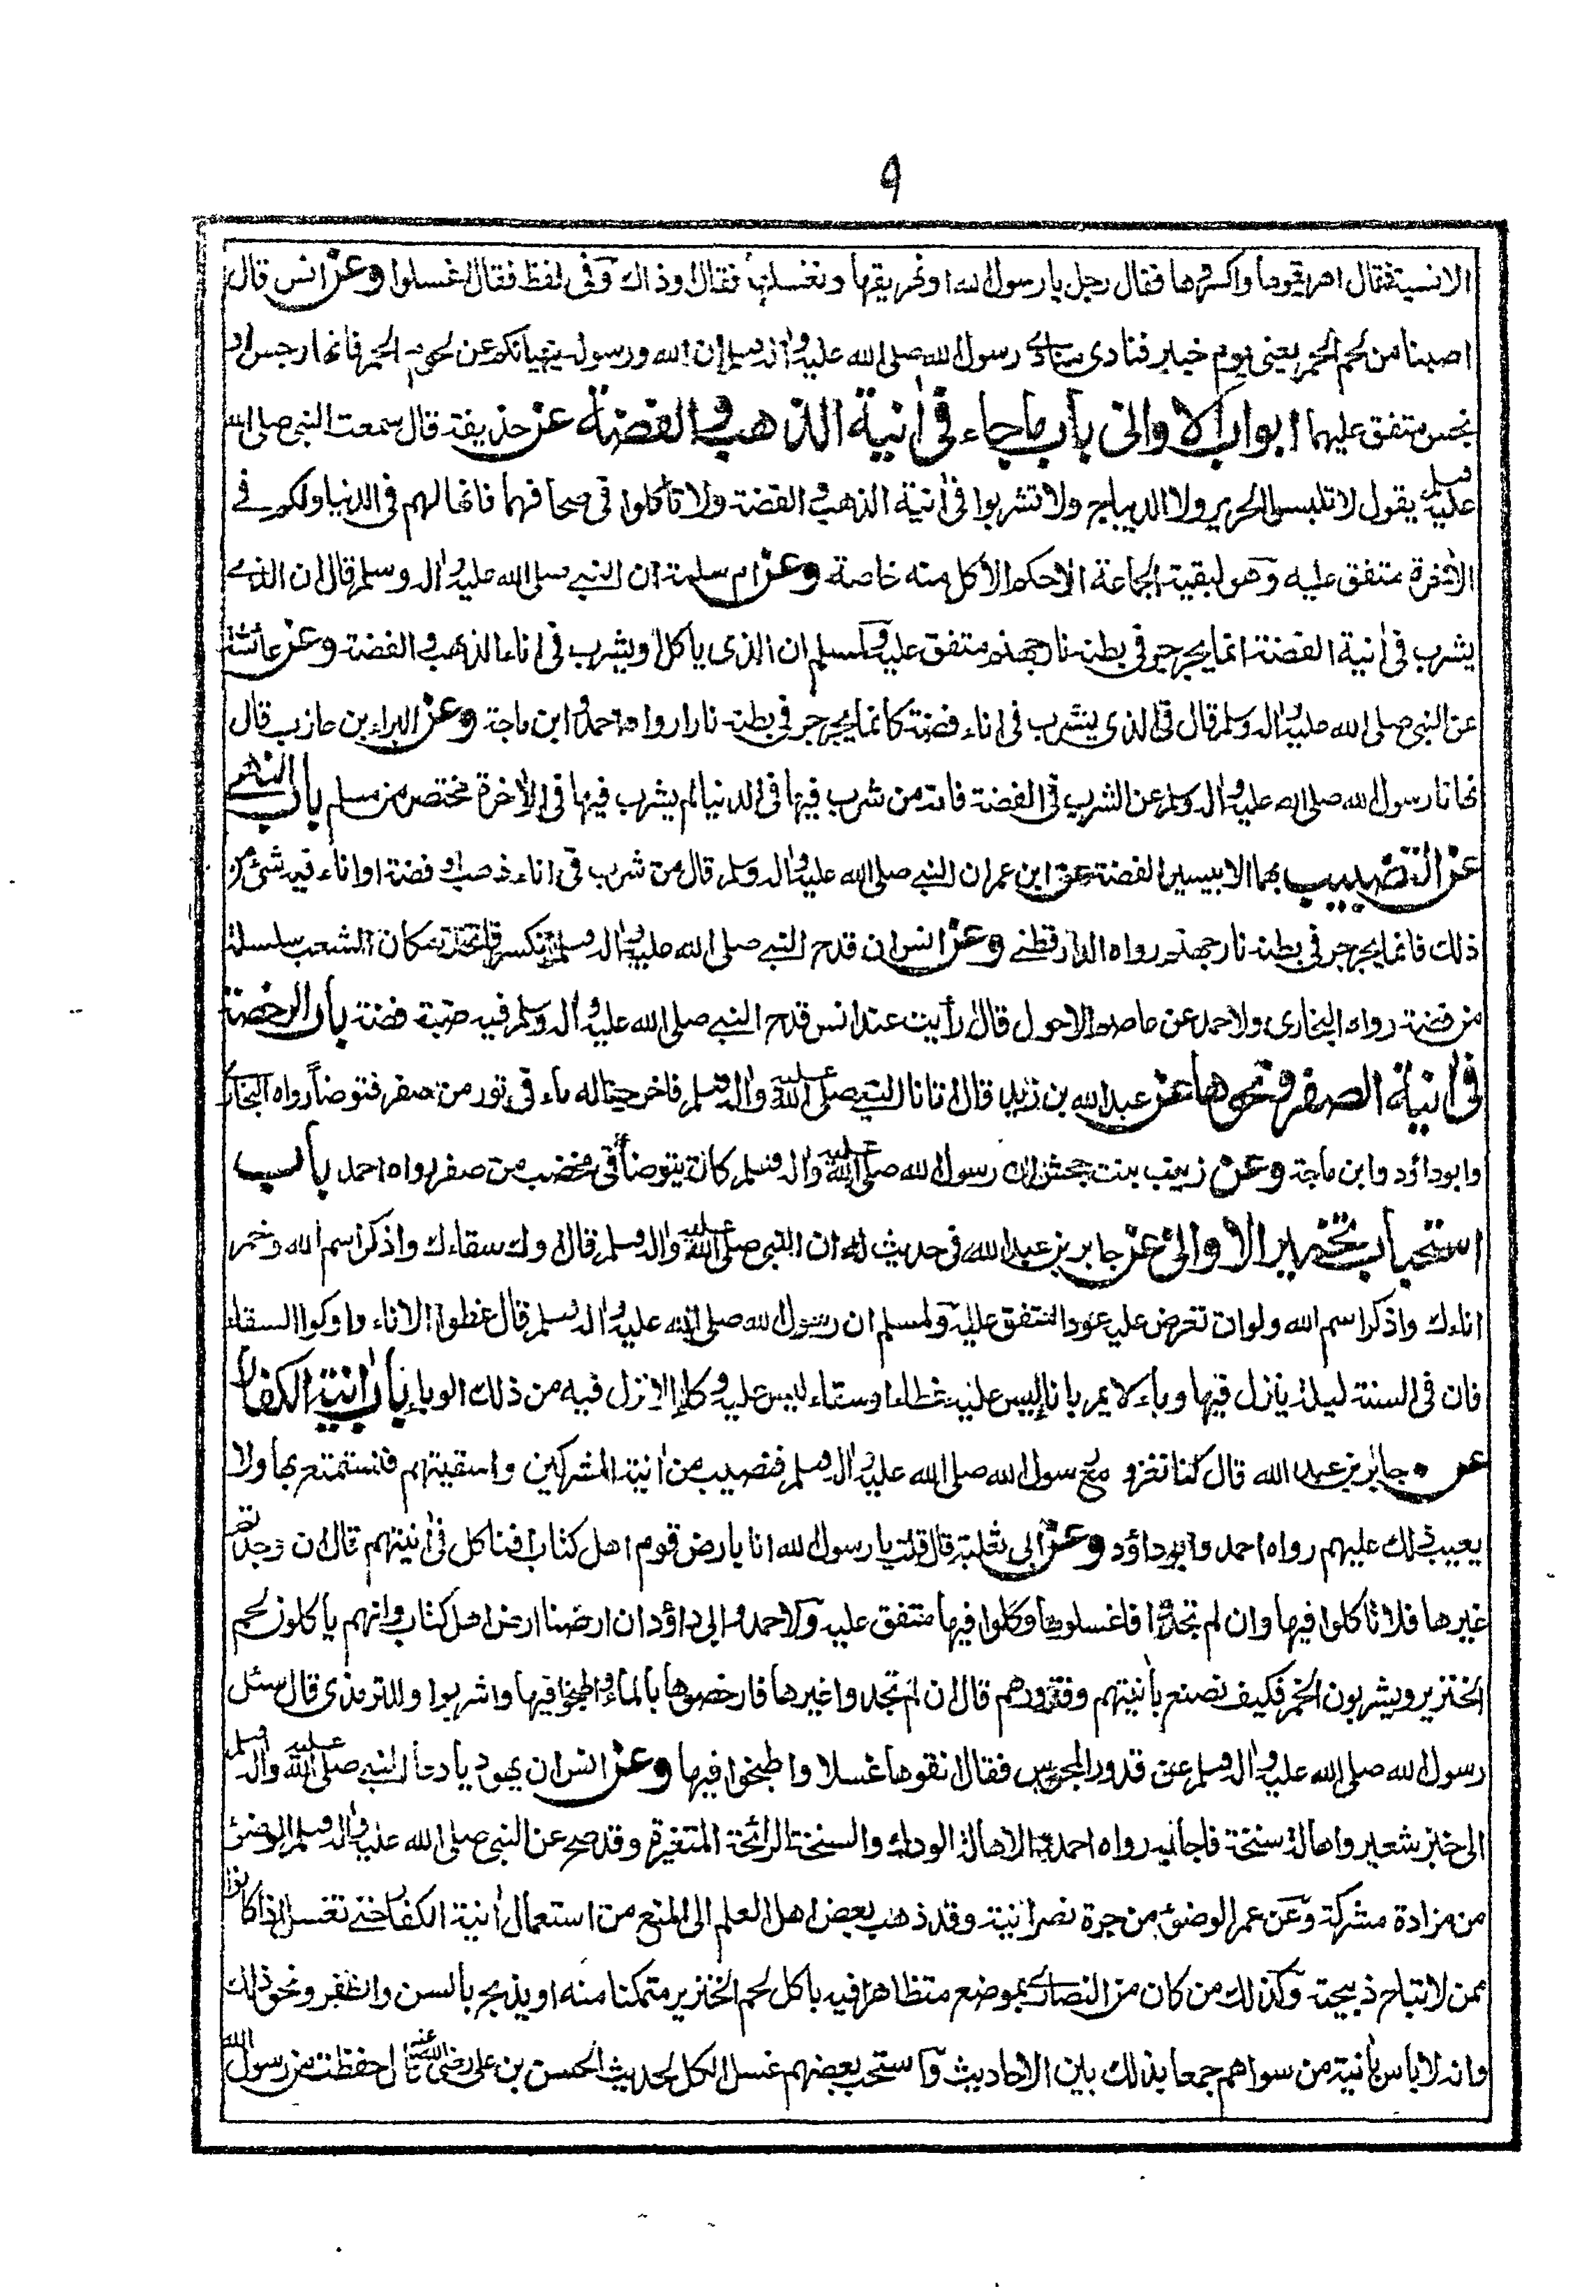 ٩
الانسية فقال اهريقوها واكسروها فقال رجل يا رسول الله او نهريقها ونغسلها فقال او ذاك وفي لفظ فقال اغسلوا وعن انس قال
اصبنا من لحم الحمر يعنى يوم خيبر فنادى منادى رسول الله صلى الله عليه واله وسلم ان الله ورسوله ينهيانكم عن لحوم الحمر فانها رجس او
نجس متفق عليهما ابواب الاوانى باب ما جاء فى انية الذهب والفضة عن حذيفة قال سمعت النبى صلى الله
عليه وسلم يقول لا تلبسوا الحرير ولا الديباج ولا تشربوا فى انية الذهب والفضة ولا تأكلوا فى صحافهما فانها لهم فى الدنيا ولكم فى
الاخرة متفق عليه وهو لبقية الجماعة الا حكم الاكل منه خاصة وعن ام سلمة ان النبى صلى الله عليه واله وسلم قال ان الذى
يشرب فى انية الفضة انما يجرجر فى بطنه نار جهنم متفق عليه ولمسلم ان الذى ياكل او يشرب فى اناء الذهب والفضة وعن عائشة
عن النبى صلى الله عليه واله وسلم قال فى الذى يشرب فى اناء فضة كانما يجرجر فى بطنه نارا رواه احمد وابن ماجة وعن البراء بن عازب قال
نهانا رسول الله صلى الله عليه واله وسلم عن الشرب فى الفضة فانه من شرب فيها فى الدنيا لم يشرب فيها فى الاخرة مختصر من مسلم باب النهى
عن التضبيب بهما الا بيسير الفضة عن ابن عمر ان النبى صلى الله عليه واله وسلم قال من شرب فى اناء ذهب او فضة او اناء فيه شئ من
ذلك فانما يجرجر فى بطنه نار جهنم رواه الدارقطنى وعن انس ان قدح النبى صلى الله عليه واله وسلم انكسر فاتخذ مكان الشعب سلسلة
من فضة رواه البخارى ولاحمد عن عاصم الاحول قال رأيت عند انس قدح النبى صلى الله عليه واله وسلم فيه ضبة فضة باب الرخصة
فى انية الصفر ونحوها عن عبد الله بن زيد قال اتانا النبى صلى الله عليه واله وسلم فاخرجنا له ماء فى تور من صفر فتوضأ رواه البخارى
وابو داؤد وابن ماجة وعن زينب بنت جحش ان رسول الله صلى الله عليه واله وسلم كان يتوضأ فى مخضب من صفر رواه احمد باب
استحباب تخمير الاوانى عن جابر بن عبد الله فى حديث له ان النبى صلى الله عليه واله وسلم قال اوك سقاءك واذكر اسم الله وخمر
اناءك واذكر اسم الله ولو ان تعرض عليه عودا متفق عليه ولمسلم ان رسول الله صلى الله عليه واله وسلم قال غطوا الاناء واوكوا السقاء
فان فى السنة ليلة ينزل فيها وباء لا يمر باناء ليس عليه غطاء او سقاء ليس عليه وكاء الا نزل فيه من ذلك الوباء باب انية الكفار
عن جابر بن عبد الله قال كنا نغزو مع رسول الله صلى الله عليه واله وسلم فنصيب من انية المشركين واسقيتهم فنستمتع بها ولا
يعيب ذلك عليهم رواه احمد وابو داؤد وعن ابى ثعلبة قال قلت يا رسول الله انا بارض قوم اهل كتاب افناكل فى انيتهم قال ان وجدتم
غيرها فلا تاكلوا فيها وان لم تجدوا فاغسلوها وكلوا فيها متفق عليه ولاحمد وابى داؤد ان ارضنا ارض اهل كتاب وانهم ياكلون لحم
الخنزير ويشربون الخمر فكيف نصنع بانيتهم وقدورهم قال ان لم تجدوا غيرها فارحضوها بالماء واطبخوا فيها واشربوا وللترمذى قال سئل
رسول الله صلى الله عليه واله وسلم عن قدور المجوس فقال انقوها غسلا واطبخوا فيها وعن انس ان يهوديا دعا النبى صلى الله عليه واله وسلم
الى خبز شعير واهالة سنخة فاجابه رواه احمد والاهالة الودك والسنخة الزائخة المتغيرة وقد صح عن النبى صلى الله عليه واله وسلم الوضوء
من مزادة مشركة وعن عمر الوضوء من جرة نصرانية وقد ذهب بعض اهل العلم الى المنع من استعمال انية الكفار حتى تغسل اذا كانوا
ممن لا تباح ذبيحته وكذلك من كان من النصارى بموضع متظاهرا فيه باكل لحم الخنزير متمكنا منه او يذبح بالسن والظفر ونحو ذلك
وانه لا باس بانية من سواهم جمعا بذلك بين الاحاديث واستحب بعضهم غسل الكل لحديث الحسن بن على رضى الله عنه قال حفظت من رسول الله